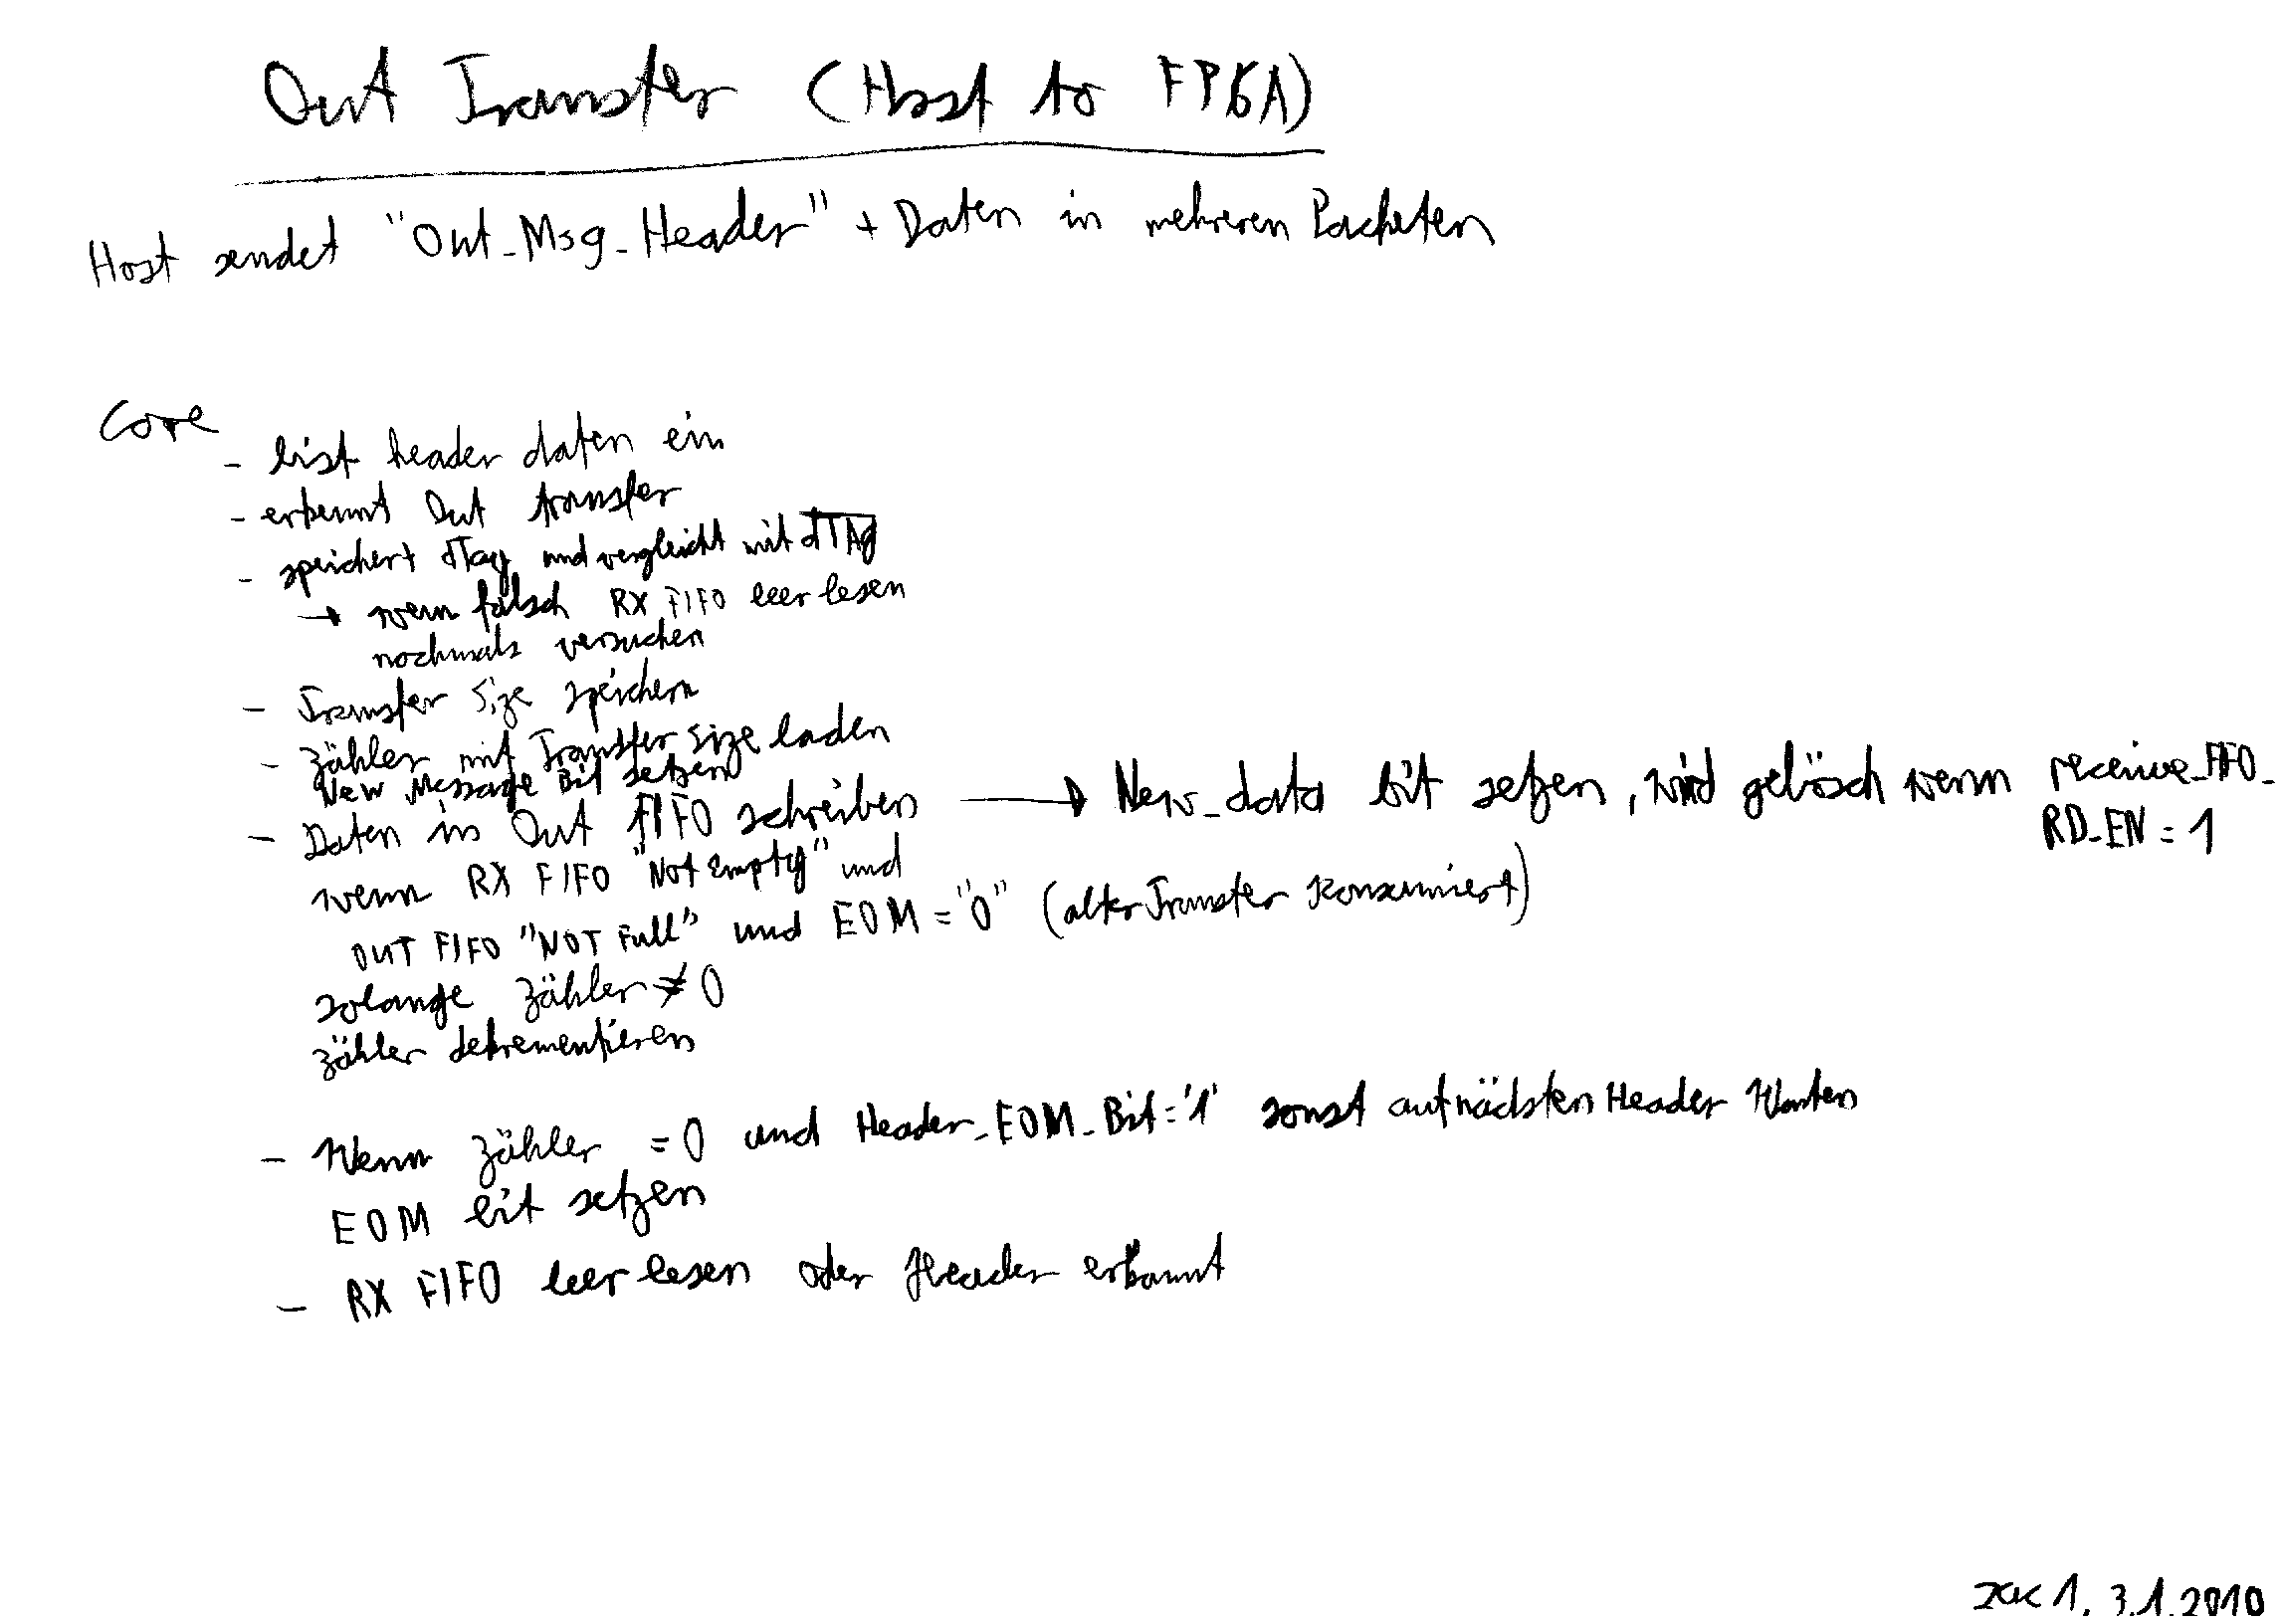 Out Transfer (Host to FPGA)
Host sendet "Out_Msg_Header" + Daten in mehreren Packeten
Core
- list header daten ein
- erkennt Out transfer
- speichert dTag und vergleicht mit dTAg
→ wenn falsch RX FIFO leer lesen
nochmals versuchen
- Transfer Size speichern
- Zähler mit Transfer Size laden
New Message Bit setzen
- Daten ins Out FIFO schreiben → New_data bit setzen, wird gelösch wenn receive_FIFO_
RD_EN = 1
wenn RX FIFO "Not Empty" und
OUT FIFO "NOT Full" und EOM = "0" (alter Transfer konsumiert)
solange Zähler ≠ 0
Zähler dekrementieren
- Wenn Zähler = 0 und Header_EOM_Bit = '1' sonst auf nächsten Header Warten
EOM bit setzen
- RX FIFO leer lesen oder Header erkannt
1, 3.1.2010